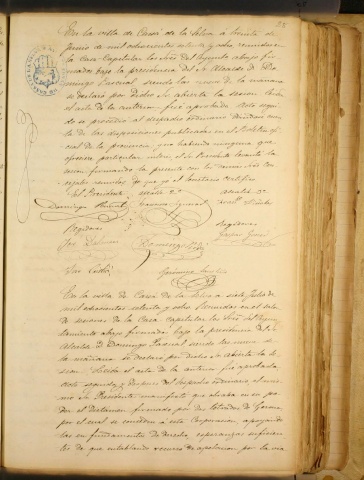 En la villa de Cassá de la Selva á treinta de
Junio de mil ochocientos setenta y ocho, reunidos en
la Casa Capitular los Sres. del Ayunto. abajo fir-
mados bajo la presidencia del Sr. Alcalde D. Do-
mingo Pascual siendo las nueve de la mañana
se declaró por dicho Sr. abierta la sesion leida
el acta de la anterior fué aprobada. Acto segui-
do se procedió al despacho ordinario dandose cuen-
ta de las disposiciones publicadas en el Boletin ofi-
cial de la provincia y no habiendo ninguna que
ofreciera particular interes, el Sr. Presidente levantó la
sesion firmando la presente con los demás Sres. con-
cejales reunidos de que yo el Secretario certifico
El Presidente Alcalde 2º Alcalde 3º
Domingo Pascual
Regidores Regidores
José Dalmau Domingo
José
En la villa de Cassá de la Selva a siete Julio de
mil ochocientos setenta y ocho. Reunidos en el salon
de sesiones de la Casa Capitular los Sres. del Ayun-
tamiento abajo firmados bajo la presidencia del Sr.
Alcalde D. Domingo Pascual siendo las nueve de
la mañana se declaró por dicho Sr. abierta la se-
sion. Leida el acta de la anterior fué aprobada.
Acto seguido y despues del despacho ordinario, el mis-
mo Sr. Presidente manifestó que obraba en su po-
der el dictamen firmado por dos letrados de Gerona,
por el cual se concedian á esta Corporacion apoyando-
las en fundamentos de derecho, esperanzas suficien-
tes de que entablando recurso de apelacion por la via